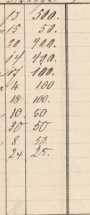 13 500.
15 50.
20 400.
14 490.
17 100.
4 100
18 100.
10 50
20 50
8 50
24 25.